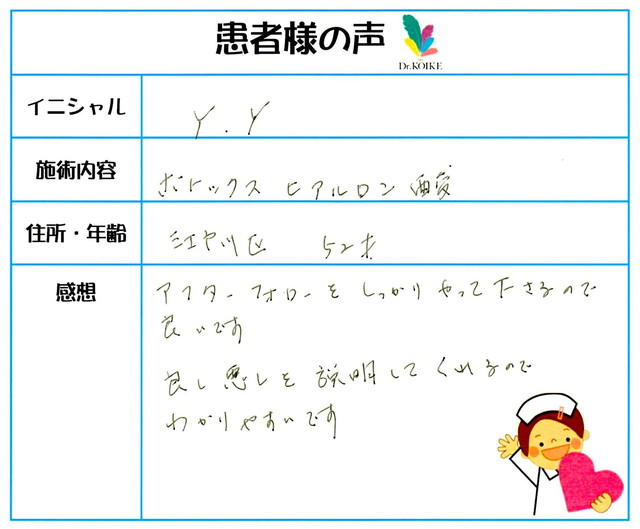 患者様の声
Dr.KOIKE
イニシャル
Y.Y
施術内容
ボトックス ヒアルロン酸
住所・年齢
江戸川区 52才
感想
アフターフォローをしっかりやって下さるので
良いです
良し悪しを説明してくれるので
わかりやすいです